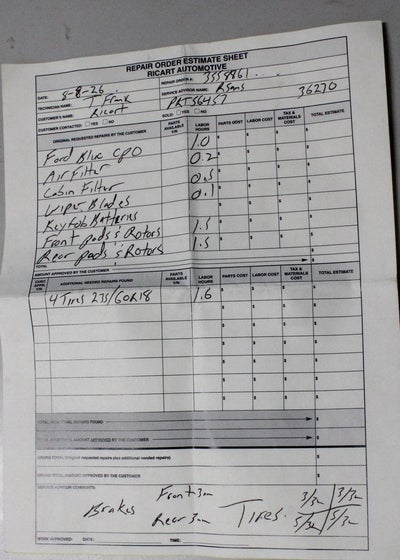 REPAIR ORDER ESTIMATE SHEET
RICART AUTOMOTIVE
DATE: 5-8-26 REPAIR ORDER #: 3558861
TECHNICIAN NAME: T Frank SERVICE ADVISOR NAME: 36270
CUSTOMER'S NAME: Ricart PRT56457
CUSTOMER CONTACTED: YES NO SOLD: YES NO
ORIGINAL REQUESTED REPAIRS BY THE CUSTOMER PARTS AVAILABLE Y/N LABOR HOURS PARTS COST LABOR COST TAX & MATERIALS COST TOTAL ESTIMATE
Ford Blue CPO 1.0
Air Filter 0.2
Cabin Filter 0.5
Wiper Blades 0.1
Keyfob Batteries
Front pads & Rotors 1.5
Rear pads & Rotors 1.5
TOTAL
AMOUNT APPROVED BY THE CUSTOMER
ADDITIONAL NEEDED REPAIRS FOUND PARTS AVAILABLE Y/N LABOR HOURS PARTS COST LABOR COST TAX & MATERIALS COST TOTAL ESTIMATE
4 Tires 275/60R18 1.6
TOTAL ADDITIONAL REPAIRS FOUND
TOTAL ADDITIONAL AMOUNT APPROVED BY THE CUSTOMER
GRAND TOTAL (original requested repairs plus additional needed repairs)
GRAND TOTAL AMOUNT APPROVED BY THE CUSTOMER
SERVICE ADVISOR COMMENTS:
Brakes Front 3mm Tires 3/32 3/32
Rear 3mm 5/32 5/32
WORK APPROVED: DATE: TIME: